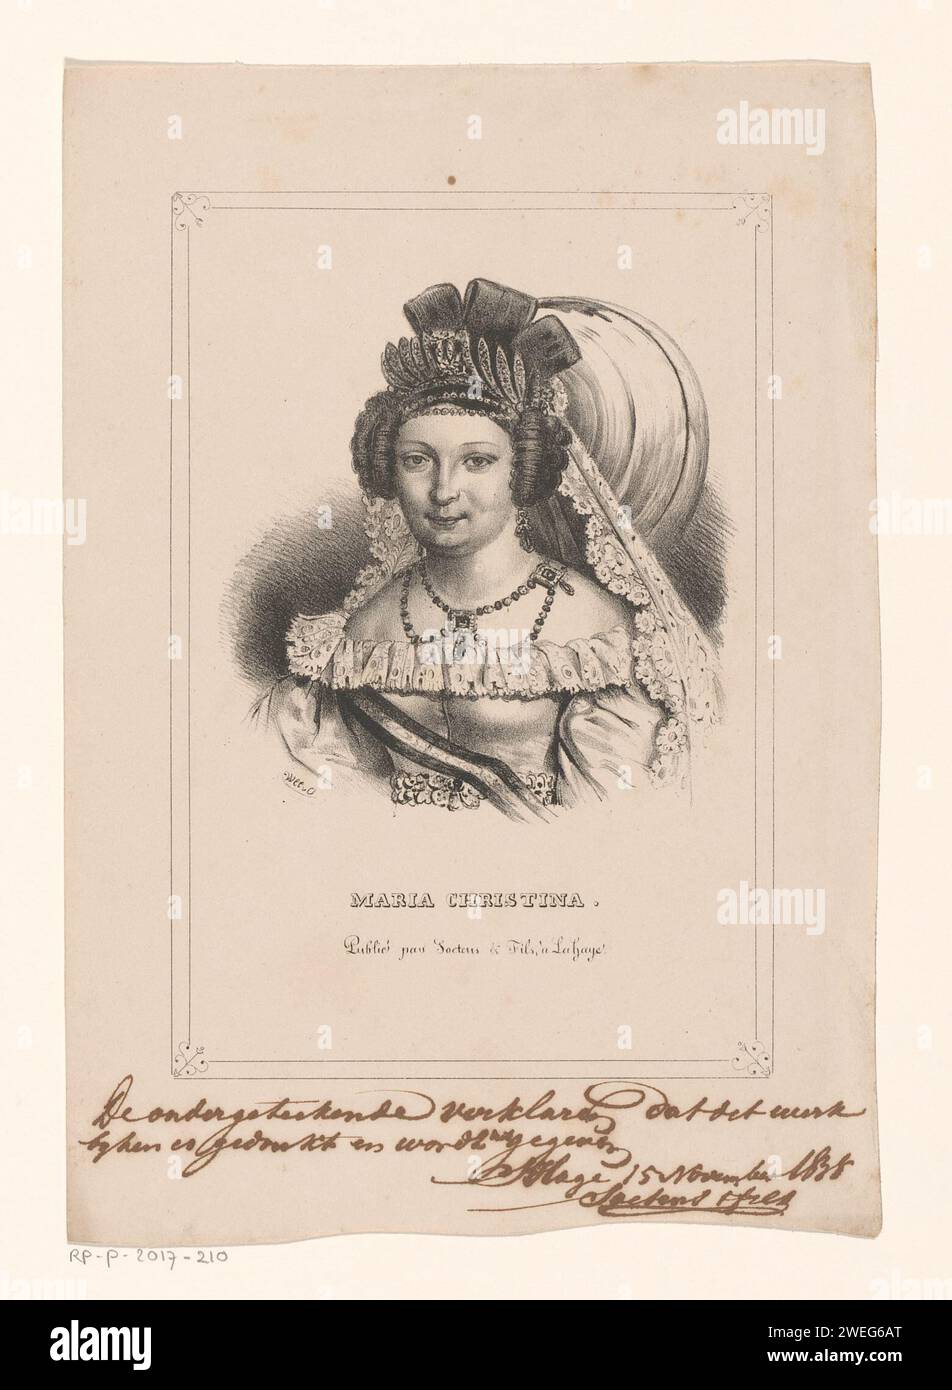 MARIA CHRISTINA.
Publié par Soetens & Fils, à Lahaye.
De ondergeteekende verklaren dat dit werk
by hen is gedrukt en wordt uitgegeven
S'Hage 15 November 1838
Soetens & fils
RP-P-2017-210
alamy
Image ID: 2WEG6AT
www.alamy.com